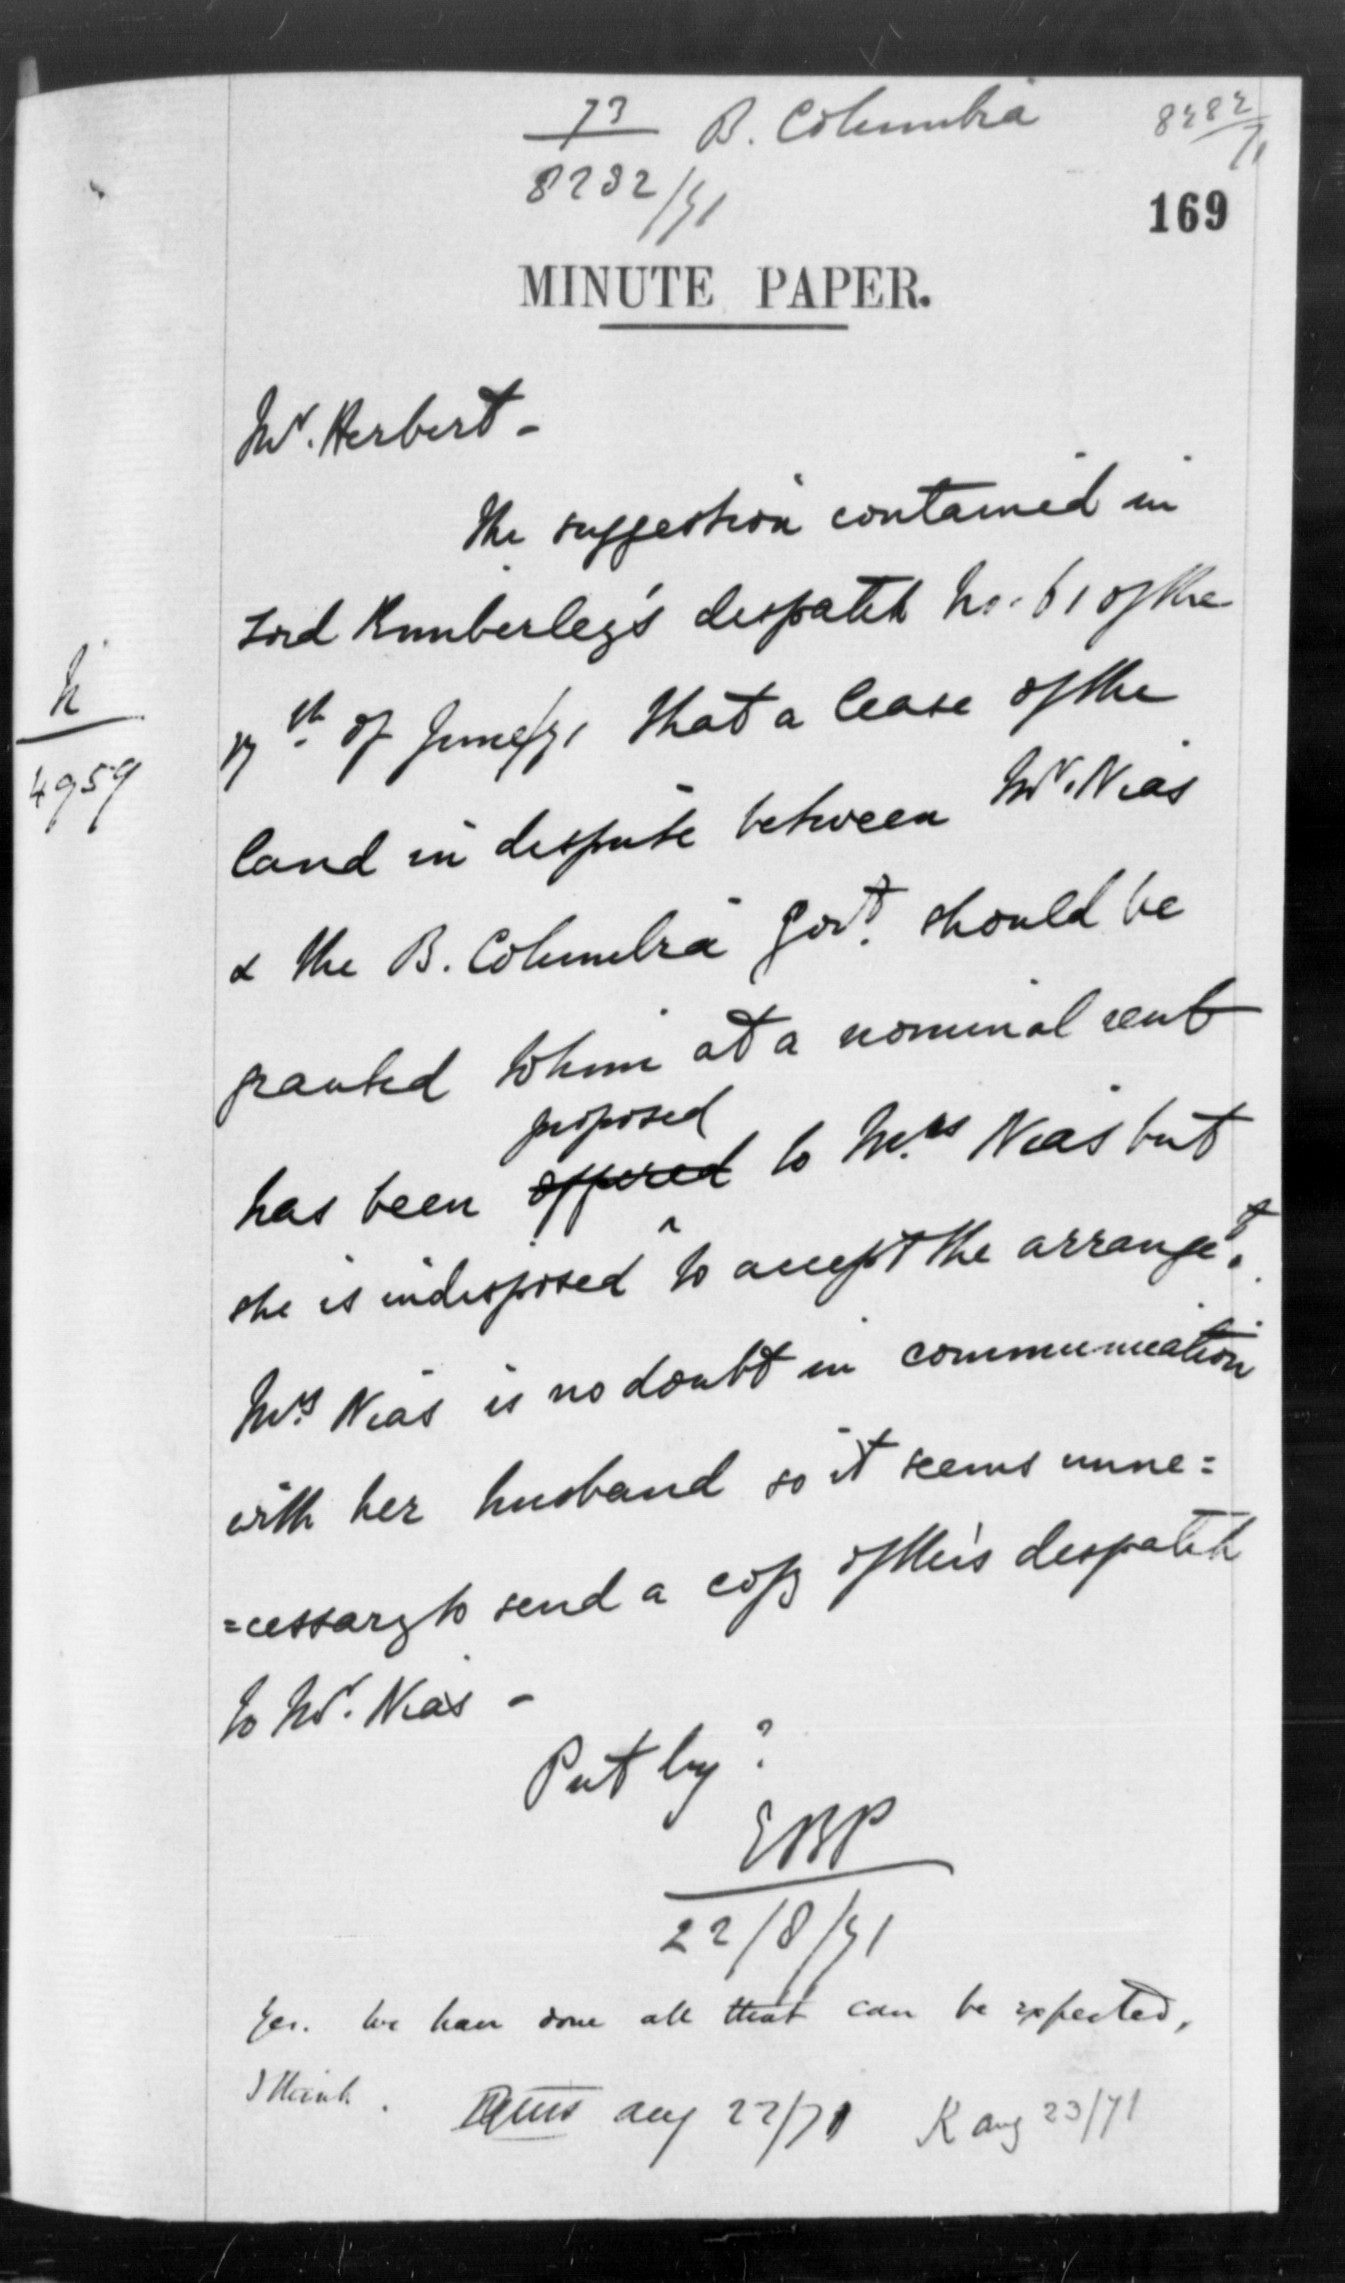 73 B. Columbia
8282/71
8282/71
169
MINUTE PAPER.
Mr. Herbert -
The suggestion contained in
Lord Kimberley's despatch No. 61 of the
17th of June/71 that a lease of the
land in dispute between Mr. Nias
& the B. Columbia Govt. should be
granted to him at a nominal rent
proposed
has been offered to Mrs Nias but
she is indisposed to accept the arranget.
Mrs Nias is no doubt in communication
with her husband so it seems unne=
=cessary to send a copy of this despatch
to Mr. Nias -
Put by?
EBP
22/8/71
Yes. We have done all that can be expected,
I think.
Aug 22/71 K Aug 23/71
N
4959